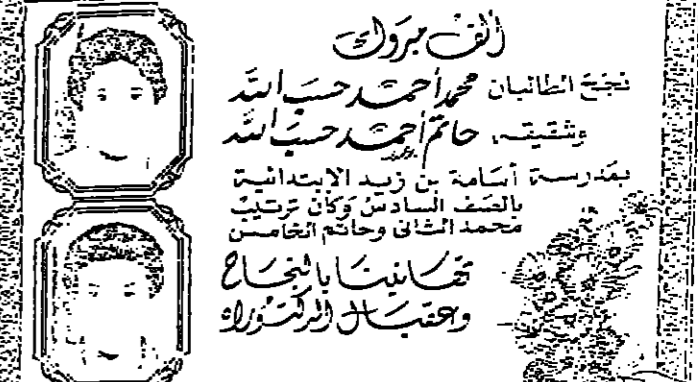 ألف مبروك
نجح الطالبان محمد أحمد حسب الله
وشقيقه حاتم أحمد حسب الله
بمدرسة أسامة بن زيد الابتدائية
بالصف السادس وكان ترتيب
محمد الثاني وحاتم الخامس
تهانينا بالنجاح
وعقبال الدكتوراه